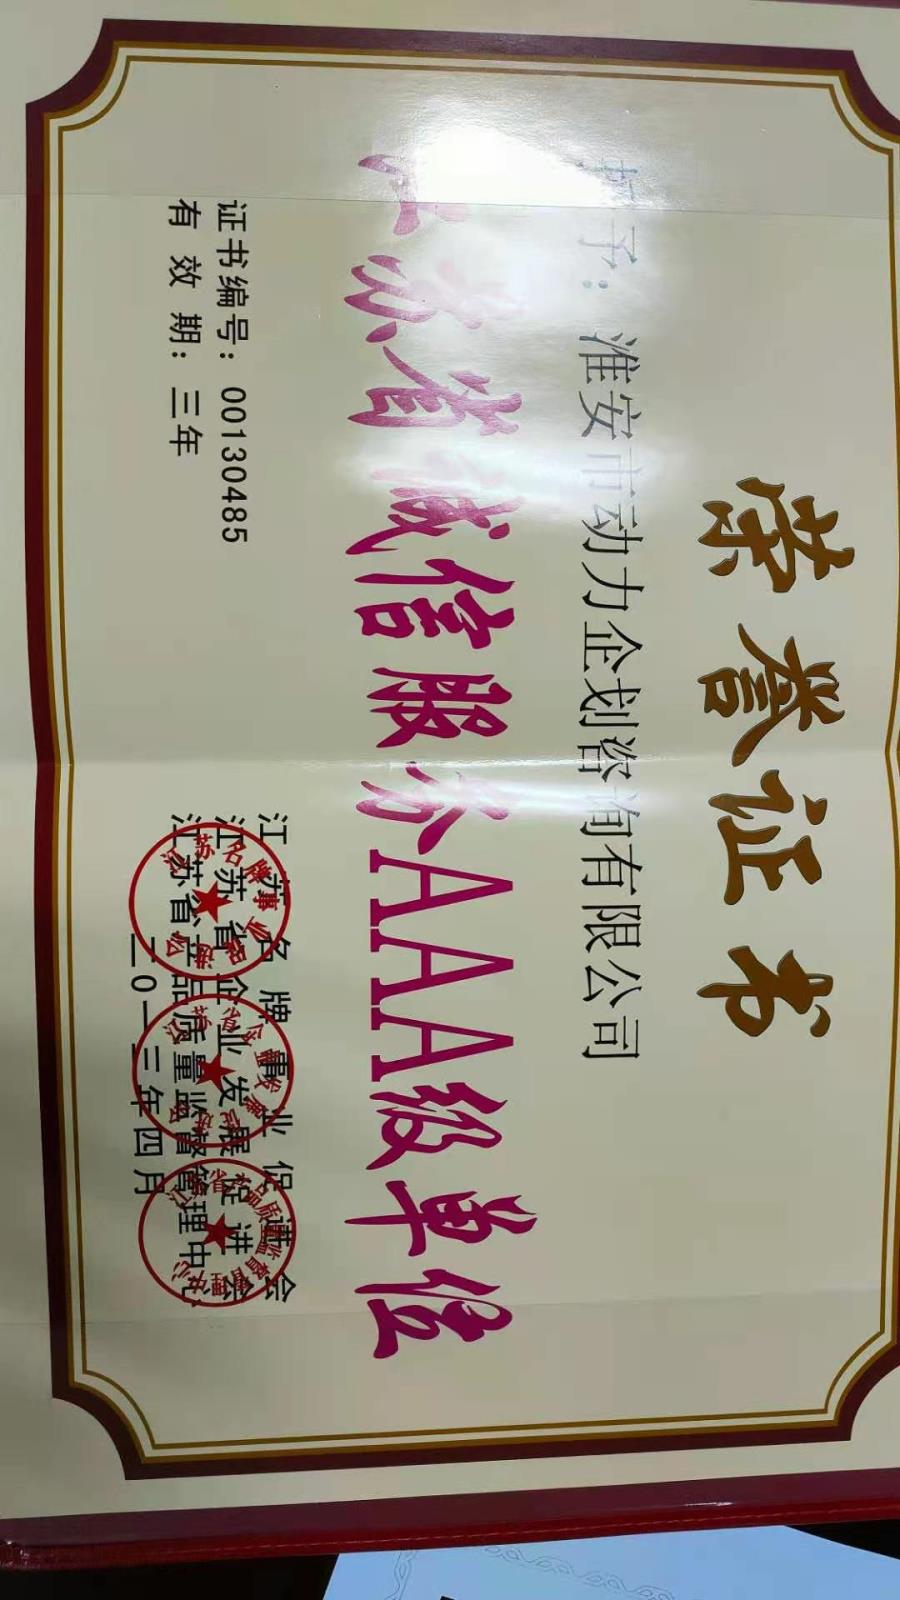 荣誉证书
授予：淮安市动力企划咨询有限公司
江苏省诚信服务AAA级单位
证书编号：00130485
有效期：三年
江苏名牌事业促进会
江苏省企业发展促进会
江苏省产品质量监督管理中心
二0一三年四月